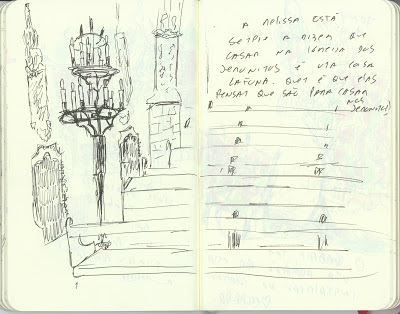 A MELISSA ESTÁ
SEMPRE A DIZER QUE
CASAR NA IGREJA DOS
JERONIMOS É UMA COISA
QUEM É QUE ELAS
PENSAM QUE SÃO PARA CASAR
NOS
JERONIMOS!